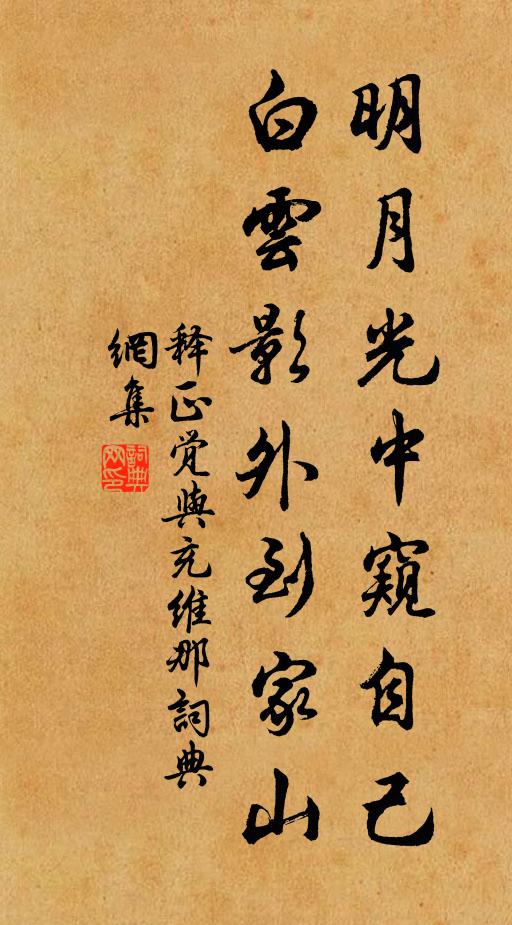 明月光中窺自己
白雲影外到家山
释正覺與充維那詞典
網集
詞典
网印